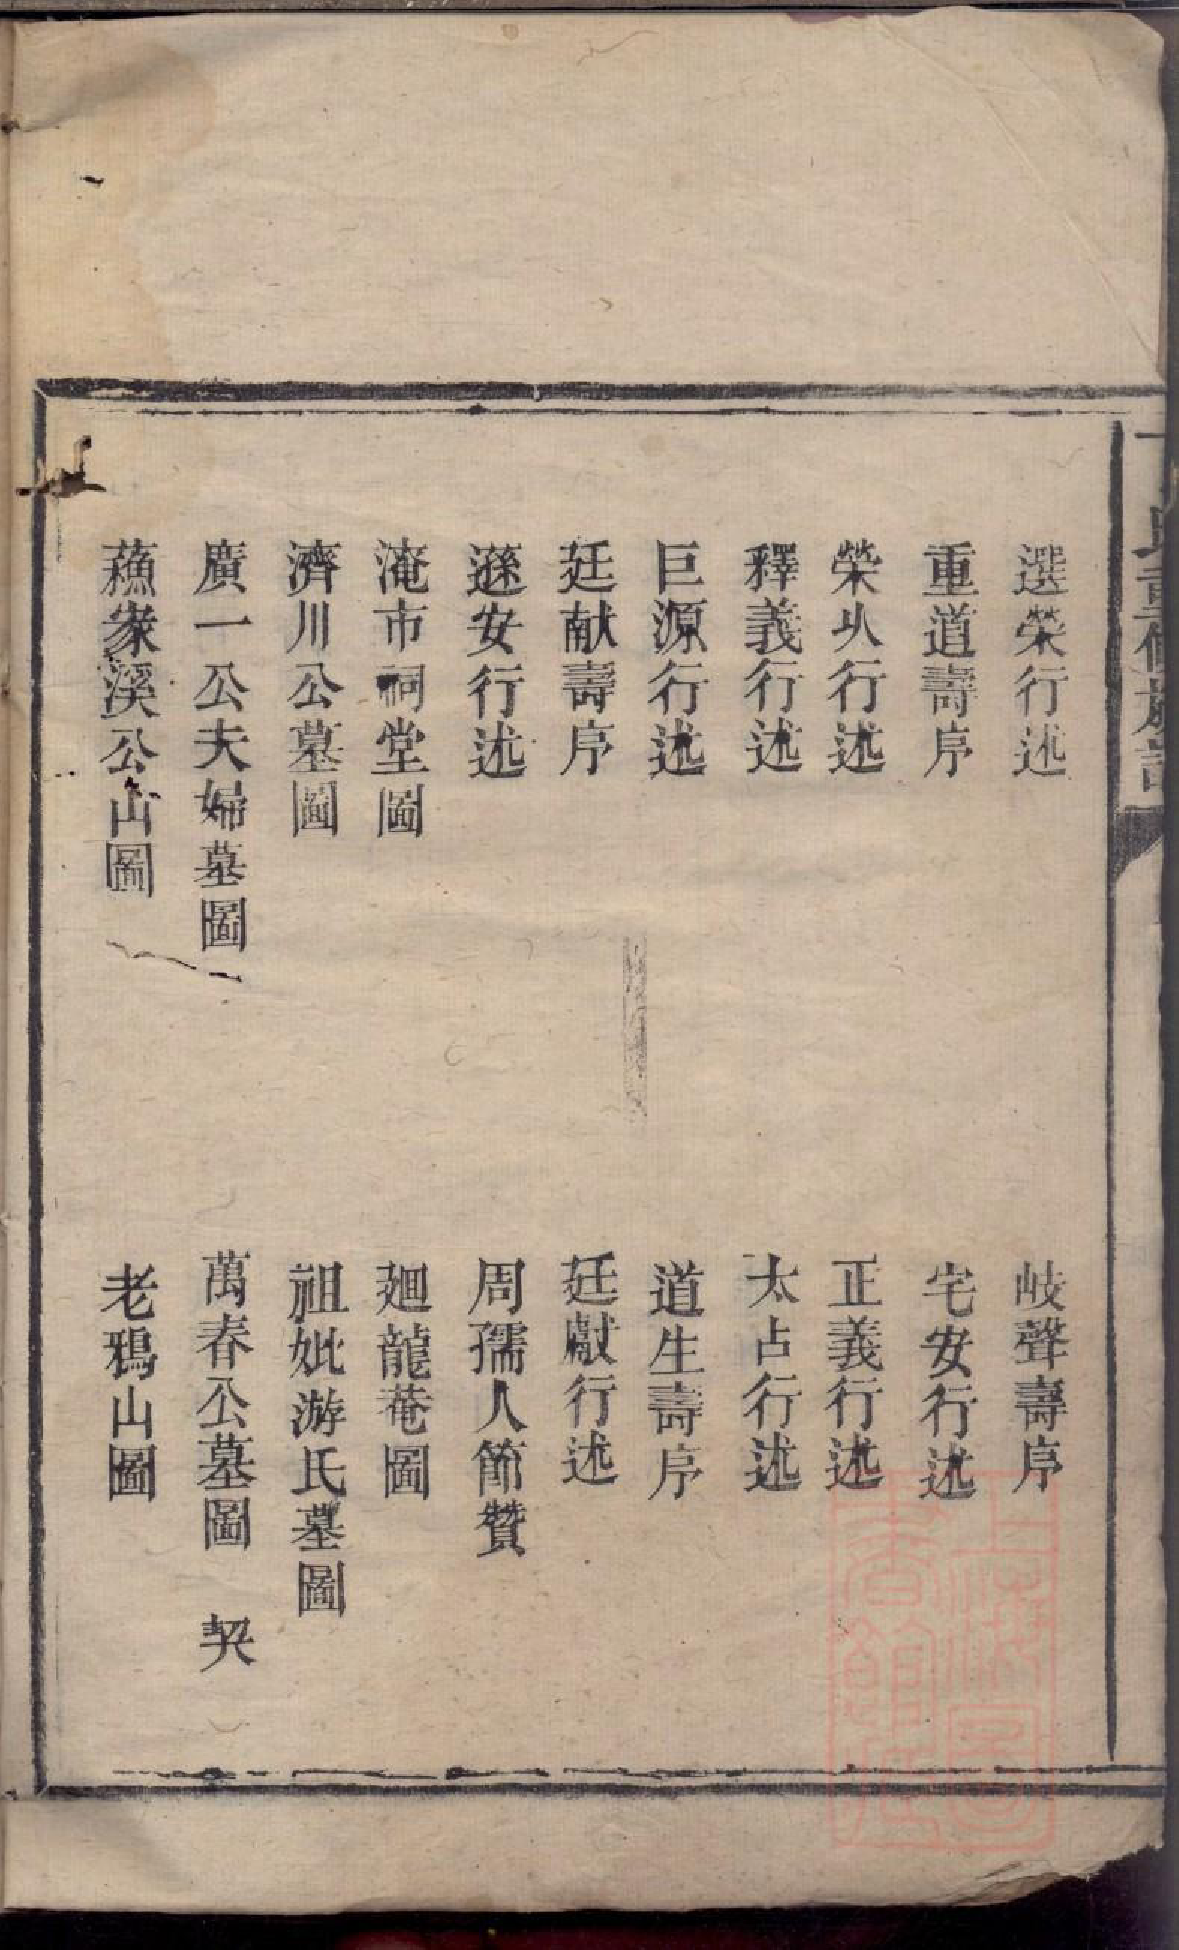 選榮行述　岐聲壽序
重道壽序　宅安行述
榮乆行述　正義行述
釋義行述　太占行述
巨源行述　道生壽序
廷献壽序　廷獻行述
遜安行述　周孺人節贊
淹市祠堂圖　廻龍菴圖
濟川公墓圖　祖妣游氏墓圖
廣一公夫婦墓圖　萬春公墓圖　契
蘓家溪公山圖　老鴉山圖
重修族譜
上海圖書館藏